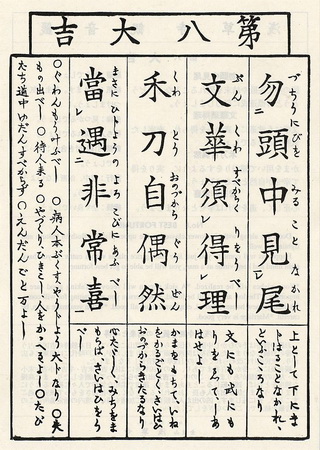 第八大吉
づちうにびを みる こと なかれ
勿頭中見尾
上として下にま
トはることなかれ
といふこゝろなり
ぶん くわ すべからく りをうべし
文華須得理
文にも武にも
りをゑて、しあ
はせよし
くわ とう おのづから ぐう ぜん
禾刀自偶然
かまをもちて、いね
をかるごとく、さいはひ
おのづからきたるなり
まさにひじようの よろこびに あふ べし
當遇非常喜
心たゞしく、みちをま
もらば、さいはひをう
べし
○ぐわんもう叶ふべし ○病人本ぶくす、やうじよう大トなり ○失
もの出べし ○待人来る ○やづくり、ひきこし、人をかゝへるよし ○たび
たち道中ゆだんすべからず ○えんだんごと万よし